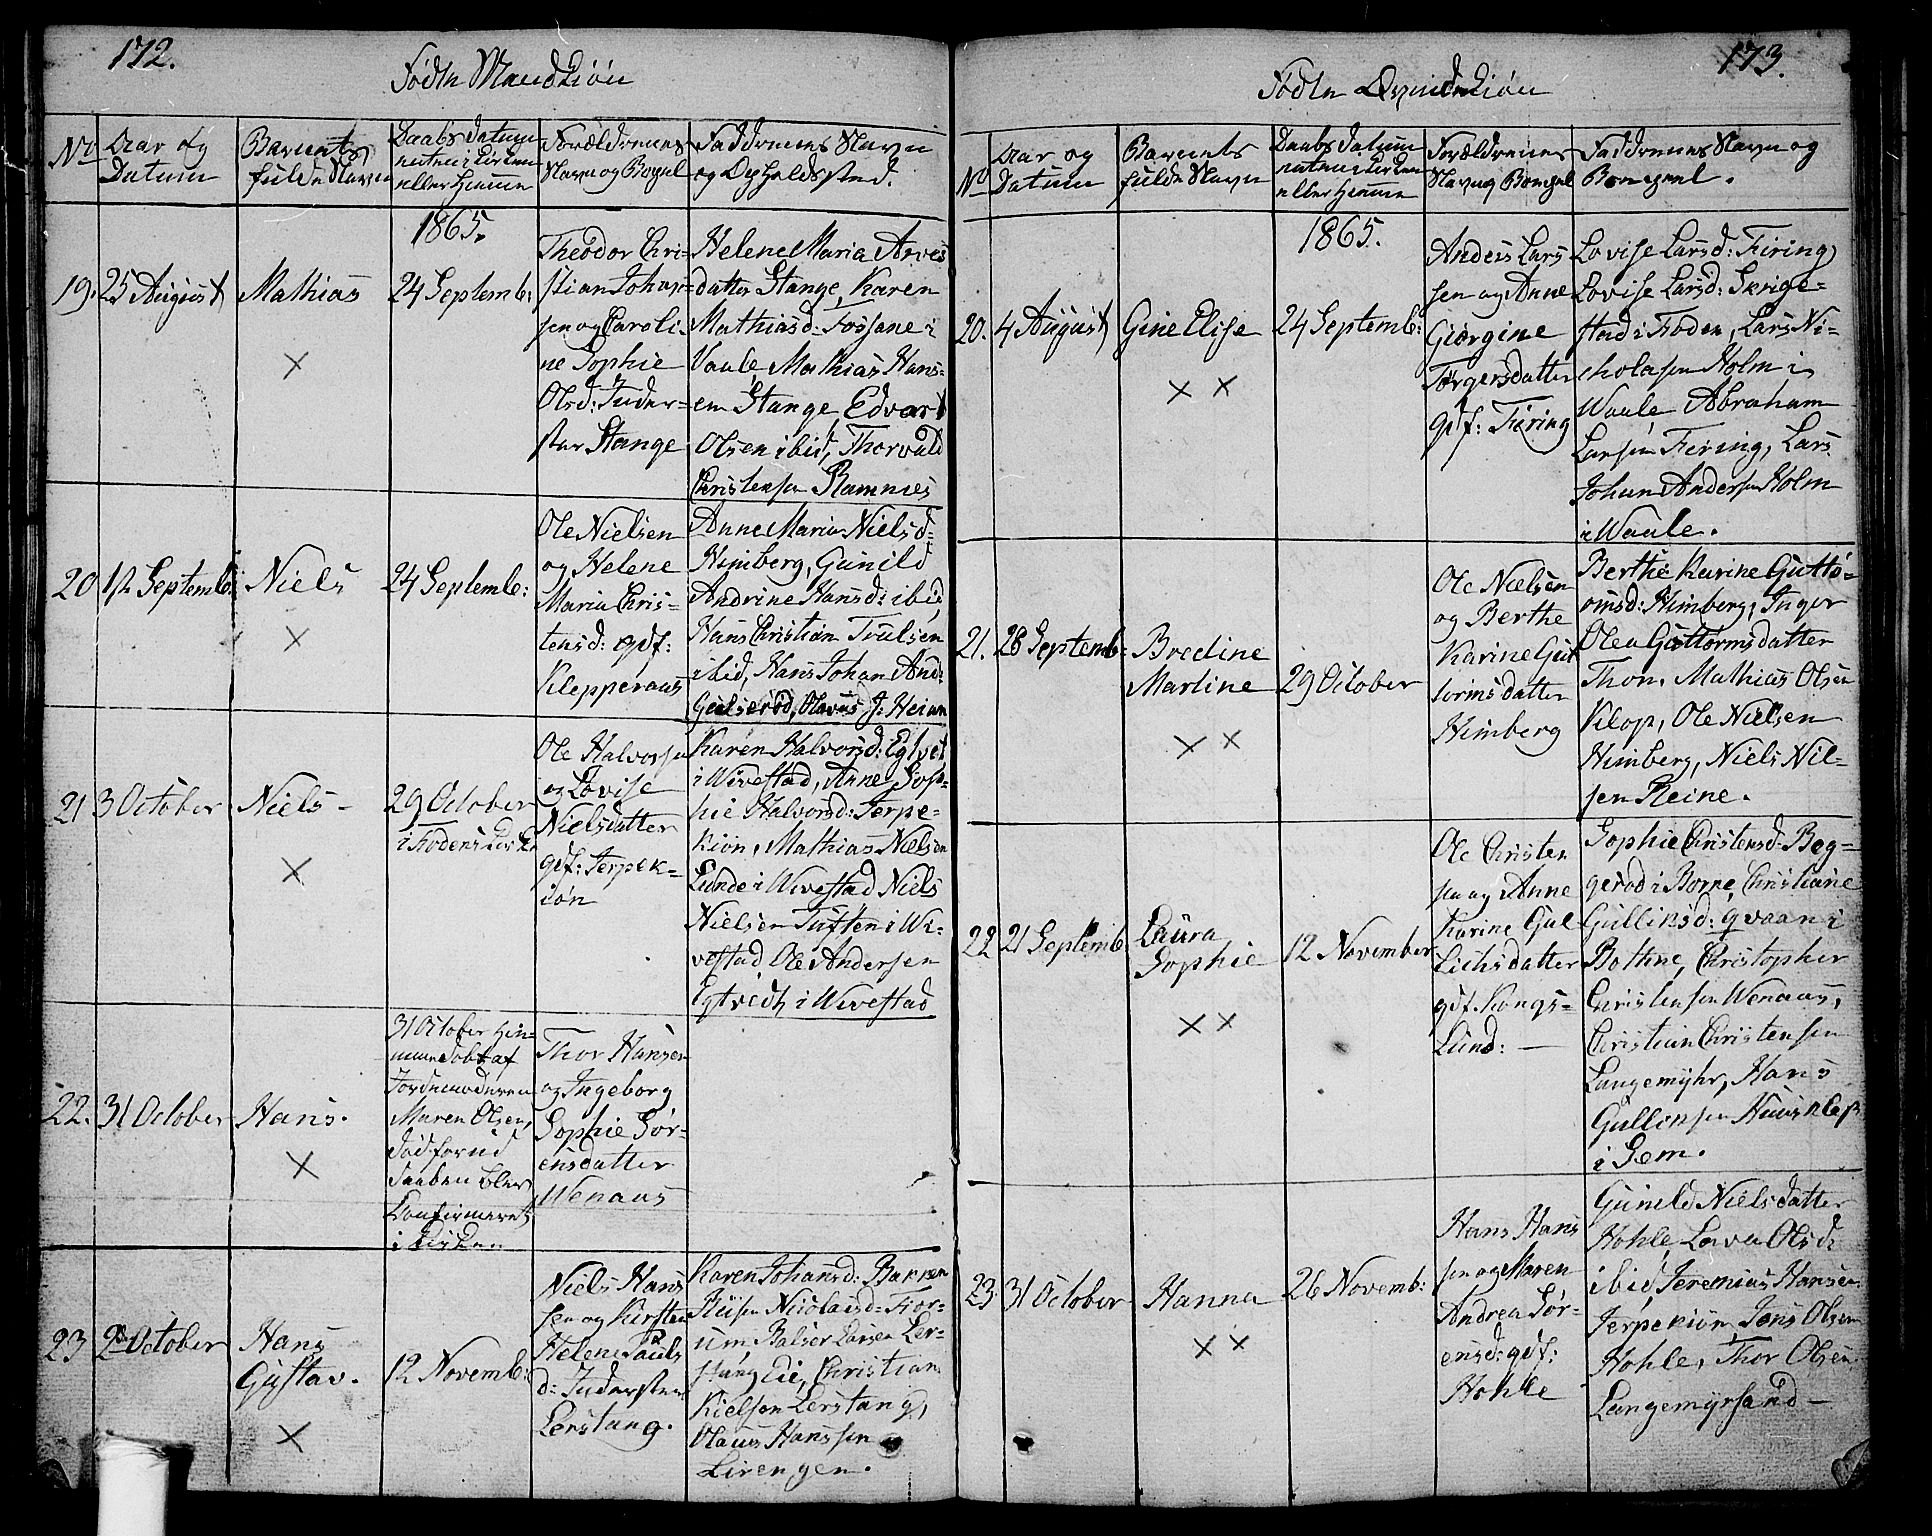 172.
Fødte Mandkiøn
No
Aar og
Datum
Barnets
fulde Navn
Daabs Datum
enten i Kirken
eller Hjemme
Forældrenes
Navn og Bopæl
Faddrenes Navn
og Opholdsted.
1865.
19.
25 August
Mathias
24 Septemb:
Theodor Chri-
stian Johan-
sen og Caroli-
ne Sophie
Olsd: Inder-
ster Stange
Helene Maria Arves
datter Stange, Karen
Mathiasd: Fossane i
Vaale Mathias Hans-
en Stange Edvart
Olsen ibid, Thorvald
Christensen Ramnes
20
12 Septemb:
Niels
24 Septemb:
Ole Nielsen
og Helene
Maria Chris-
tensd: gdf:
Klepperaas
Anne Maria Nielsd:
Himberg, Gunild
Andrine Hansd: ibid
Hans Christian Trulsen
ibid, Hans Johan And:
Gulserød, Olavus J: Heian
21
3 October
Niels -
29 October
i Fodens Kirke
Ole Halvorsen
og Lovise
Nielsdatter
gdf: Jerpek-
iøn
Karen Halvorsd: Egtvet
i Wivestad, Anne Sop-
hie Halvorsd: Jerpe-
kiøn, Mathias Nielsen
Lunde i Wivestad Niels
Nielsen Tuften i Wi-
vestad Ole Andersen
Egtvedt, i Wivestad
22.
31 October
Hans.
31 October hjem-
medøbt af
Jordemoderen
Maren Olsen,
død forud
Daaben blev
Confirmeret
i Kirken
Thor Hansen
og Ingeborg
Sophie Sør-
ensdatter
Wenaas
23
2 October
Hans
Gustav.
12 Novemb:
Niels Hans
sen og Kirsten
Helene Pauls
d: Inderster
Lerstang.
Karen Johansd: Bakken
Elisen Nicolaisd: For-
um, Balser Larsen Ler-
stang Eie, Christian
Kielsen Lerstang,
Olaus Hanssen
Lirengen.
173.
Fødte Qvindekiøn
No
Aar og
Datum
Barnets
fulde Navn
Daabs Datum
enten i Kirken
eller Hjemme
Forældrenes
Navn og Bopæl
Faddrenes Navn og
Bopæl.
1865.
20.
4 August
Gine Elise
24 Septemb:
Anders Lars
sen og Anne
Giørgine
Torgersdatter
gdf: Firing
Lovise Larsd: Firing,
Lovise Larsd: Skrige-
stad i Foden, Lars Ni-
cholasen Holm i
Waale Abraham
Larsen Firing, Lars
Johan Andersen Holm
i Waale.
21.
28 Septemb:
Bredine
Martine
29 October
Ole Nielsen
og Berthe
Karine Gut
tormsdatter
Himberg
Berthe Karine Gutto-
omsd: Himberg, Inger
Olea Guttormsdatter
Thon, Mathias Olsen
Klop, Ole Nielsen
Himberg, Niels Nil-
sen Reine.
22
21 Septemb
Laura
Sophie
12 November
Ole Christen
sen og Anne
Karine Gul
lichsdatter
gdf. Kongs-
Lund: -
Sophie Christensd: Beg-
gerød i Borre, Christiane
Gulliksd: Qvaan i
Bothne, Christopher
Christensen Wenaas,
Christian Christensen
Langemyhr, Hans
Gullissen Huusklep
i Sem.
23.
31 October
Hanna
26 Novemb:
Hans Hans
sen og Maren
Andrea Sør-
ensd: gdf:
Hohle
Gunild Nielsdatter
Hohle Lava Olsd:
ibid, Jeremias Hansen
Jerpekiøn, Jens Olsen
Hohle, Thor Olsen
Langemyrsand -